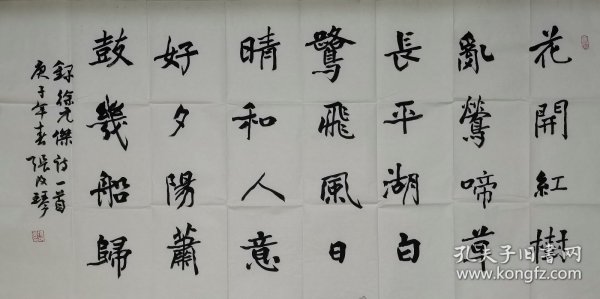 花開紅樹
亂鶯啼草
長平湖白
鷺飛風日
晴和人意
好夕陽蕭
鼓幾船歸
錄徐元傑詩一首
庚子年春張改琴
孔夫子旧书网
www.kongfz.com